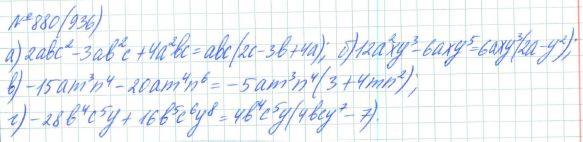 № 880 (936)
а) 2abc² - 3ab²c + 4a²bc = abc(2c - 3b + 4a); б) 12a²xy³ - 6axy⁵ = 6axy³(2a - y²);
в) -15am³n⁴ - 20am⁴n⁶ = -5am³n⁴(3 + 4mn²);
г) -28b⁴c⁵y + 16b⁵c⁶y⁸ = 4b⁴c⁵y(4bcy⁷ - 7).